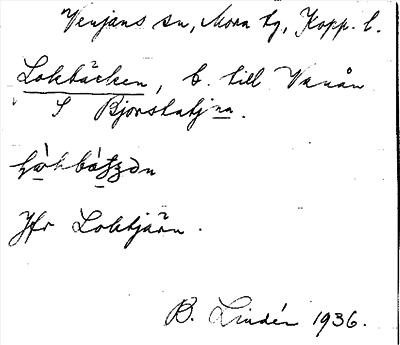 Venjans sn, Mora tg, Kopp. l.
Lokbäcken, b. till Vanån
S Bjorstatjna.
Jfr Loktjärn.
B. Lindén 1936.